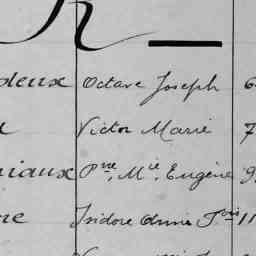 R
deux Octave Joseph 6
Victor Marie 7
iaux Pre, Mie, Eugène 9
ne Isidore Fois 11